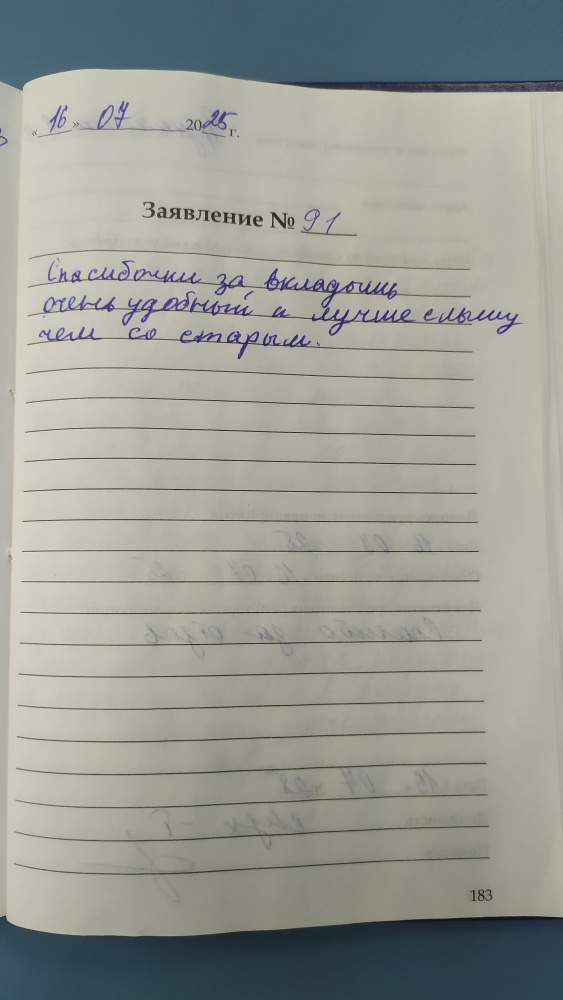 «16» 07 2025 г.
Заявление № 91
Спасибочки за вкладышь
очень удобный и лучше слышу
чем со старым.
183